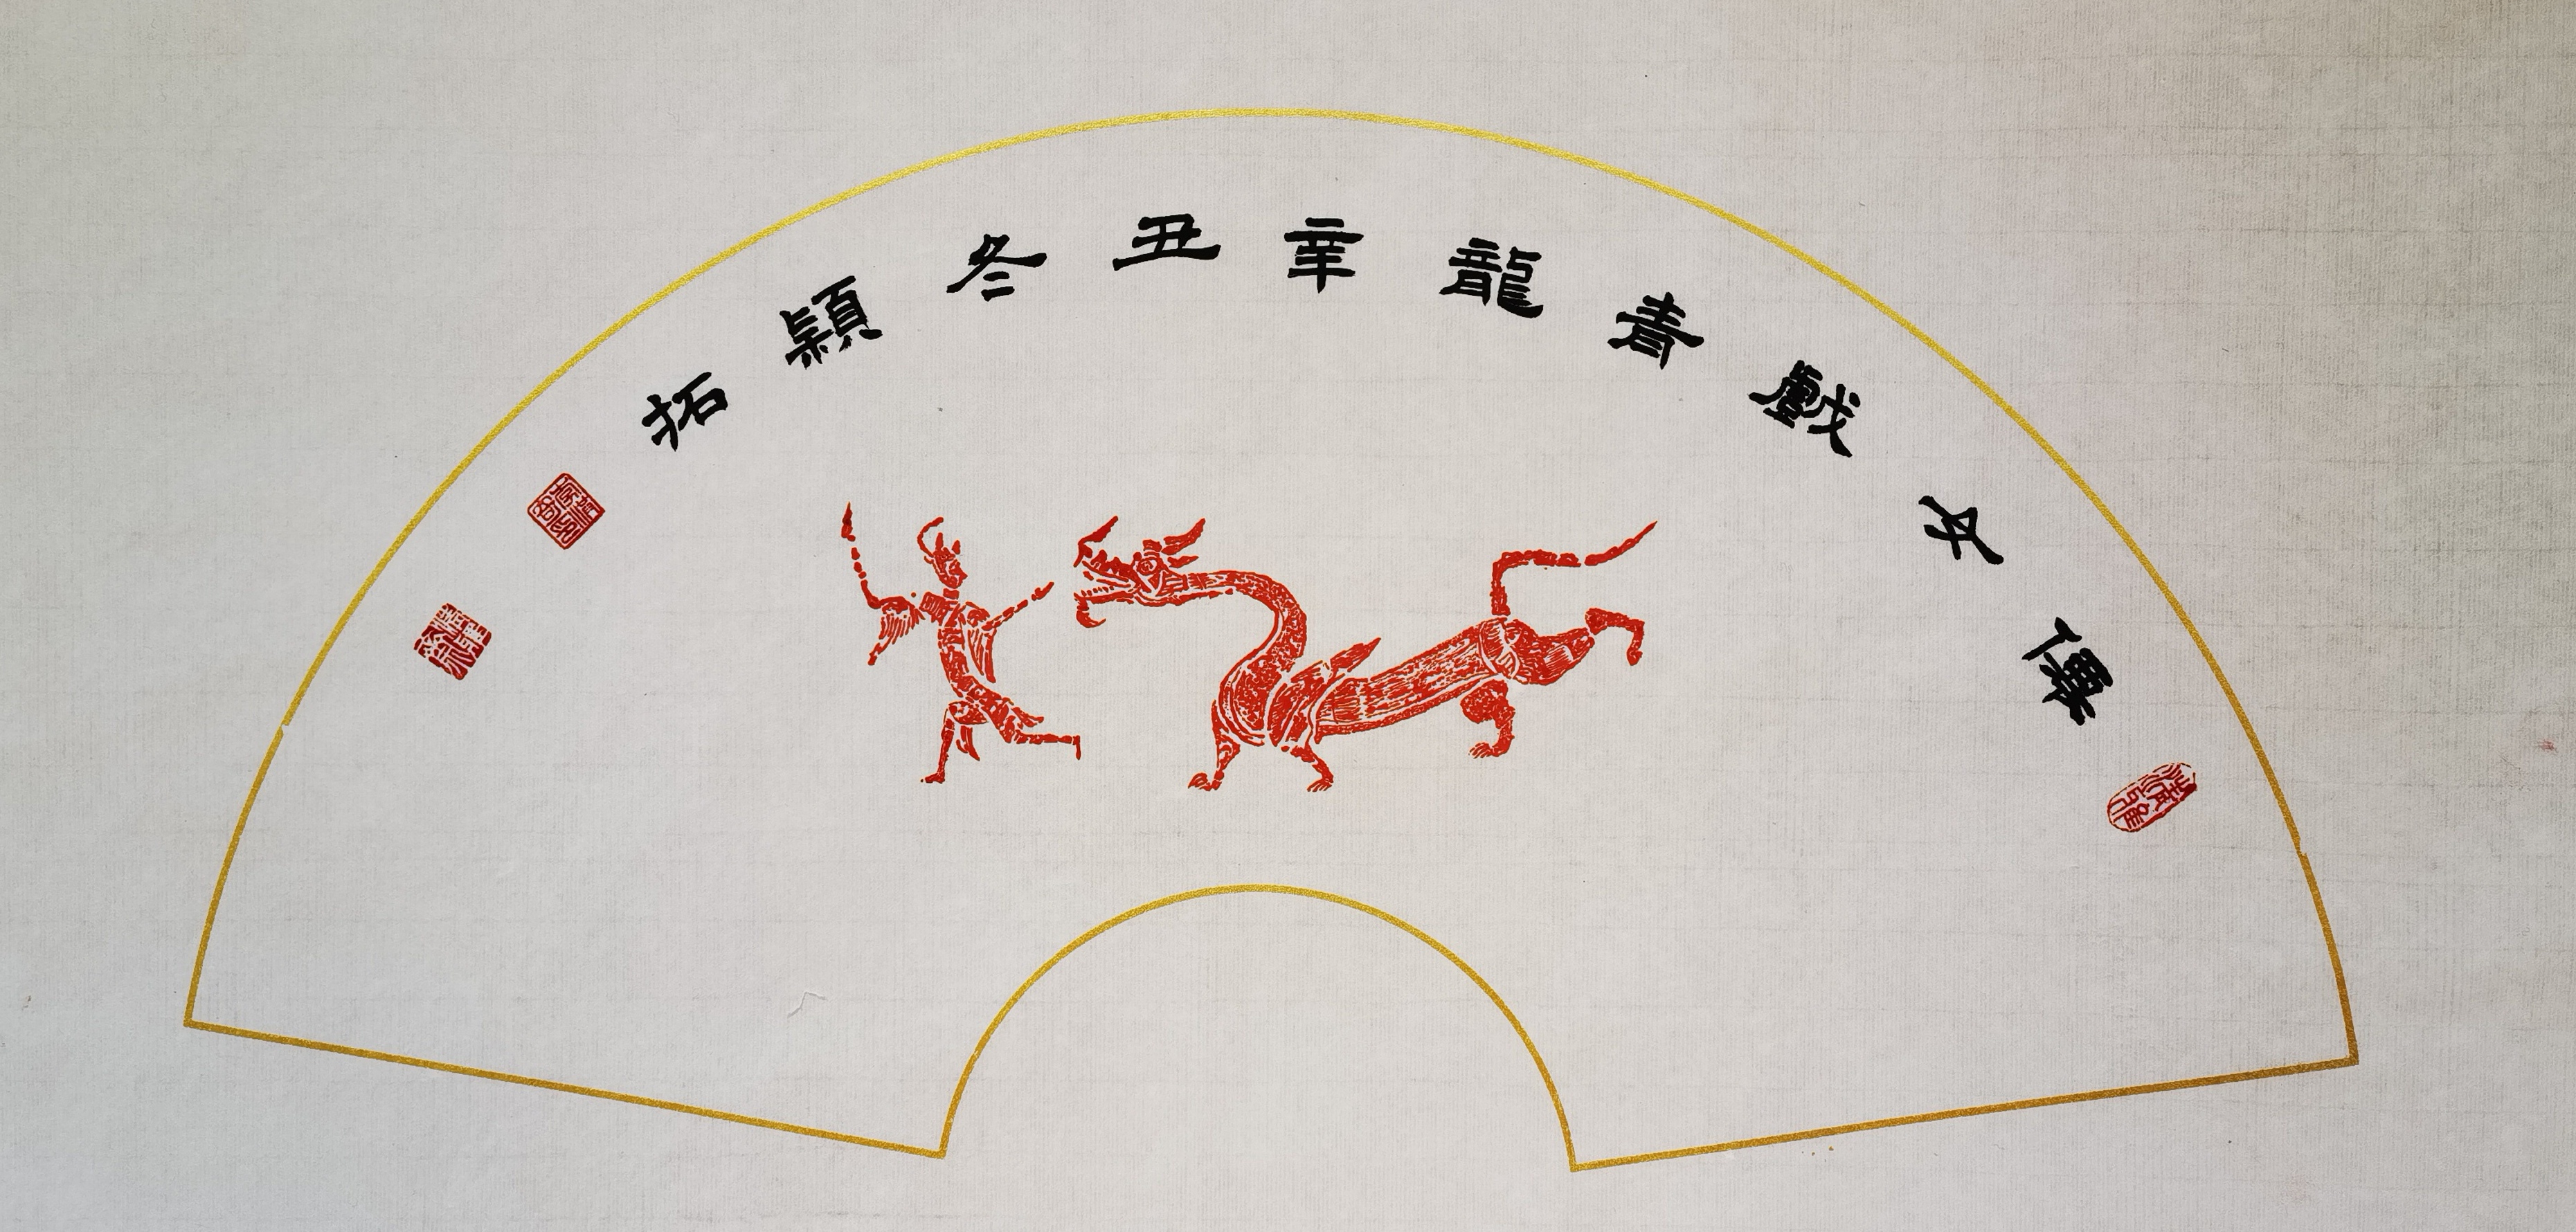 僊女戲青龍辛丑冬穎拓